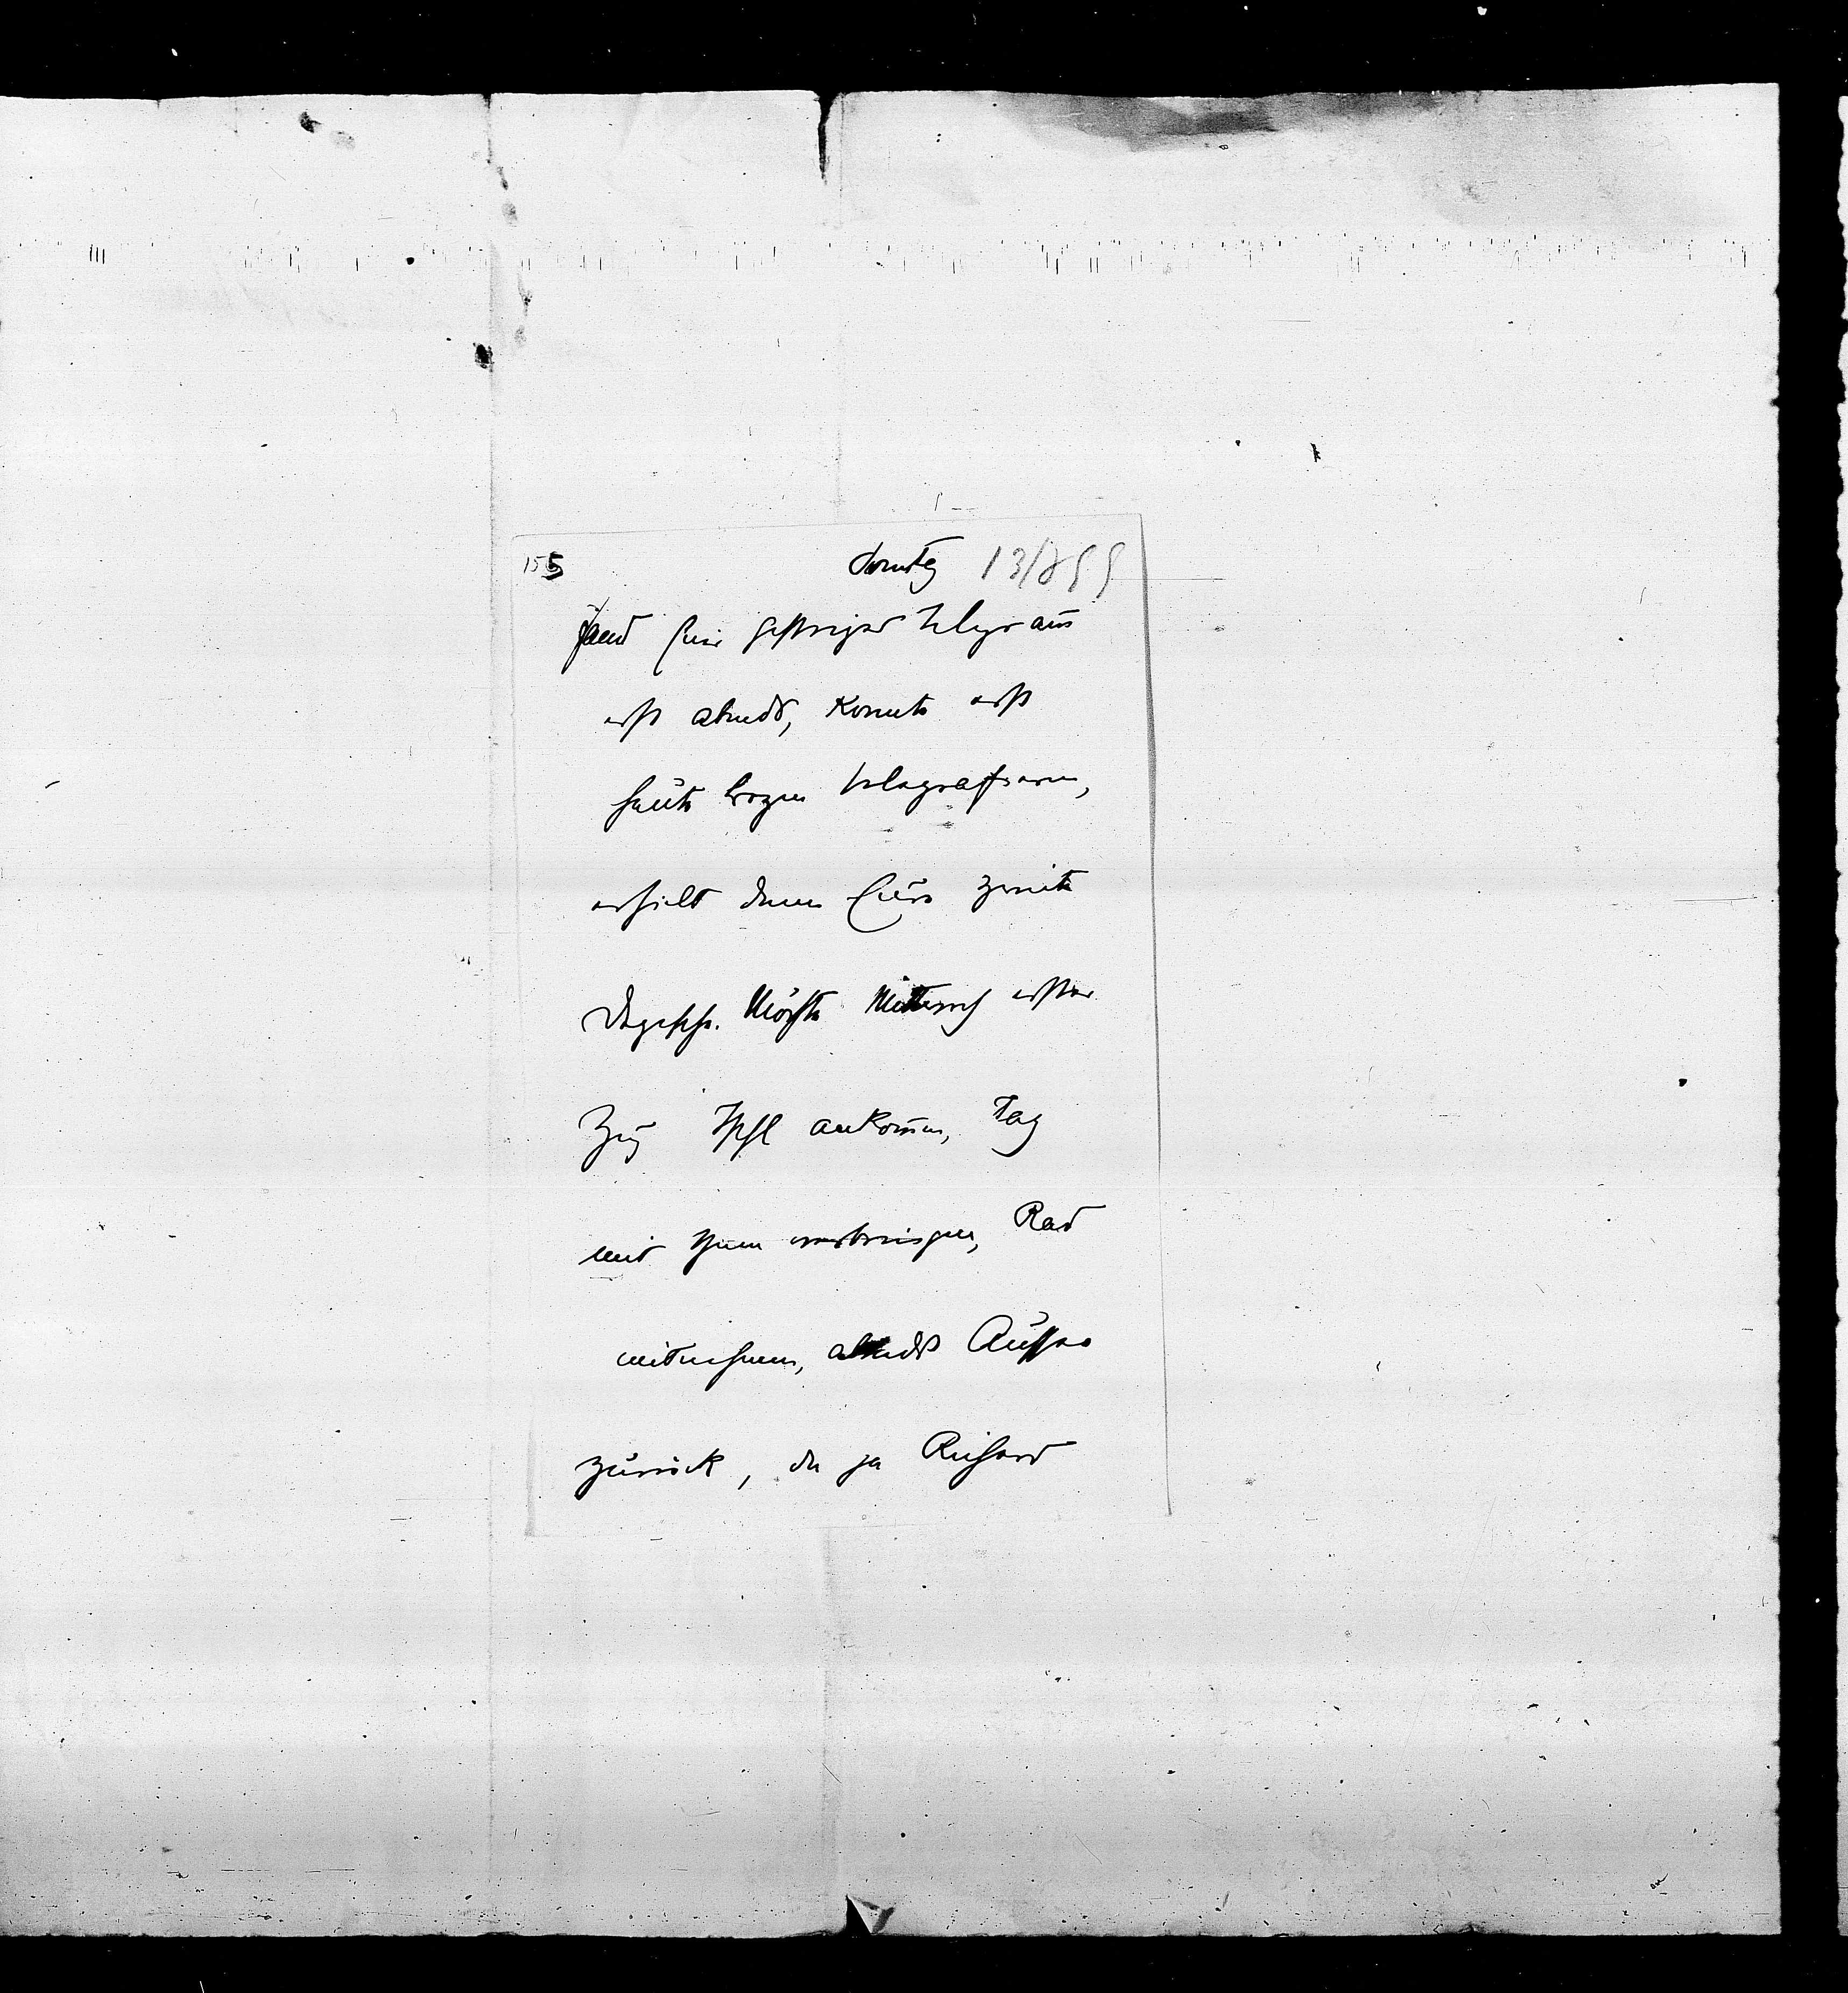 155
Sonntag 13/8 99
Fand hier gestriges Telegram̄
erst abends, konnte erst
heute Morgen telegrafieren,
erhielt dann Eure zweite
Depesche. Möchte Mittwoch erster
Zug Ischl ankom̄en, Tag
mit Ihnen verbringen, Rad
mitnehmen, abends Aussee
zurück, da ja Richard